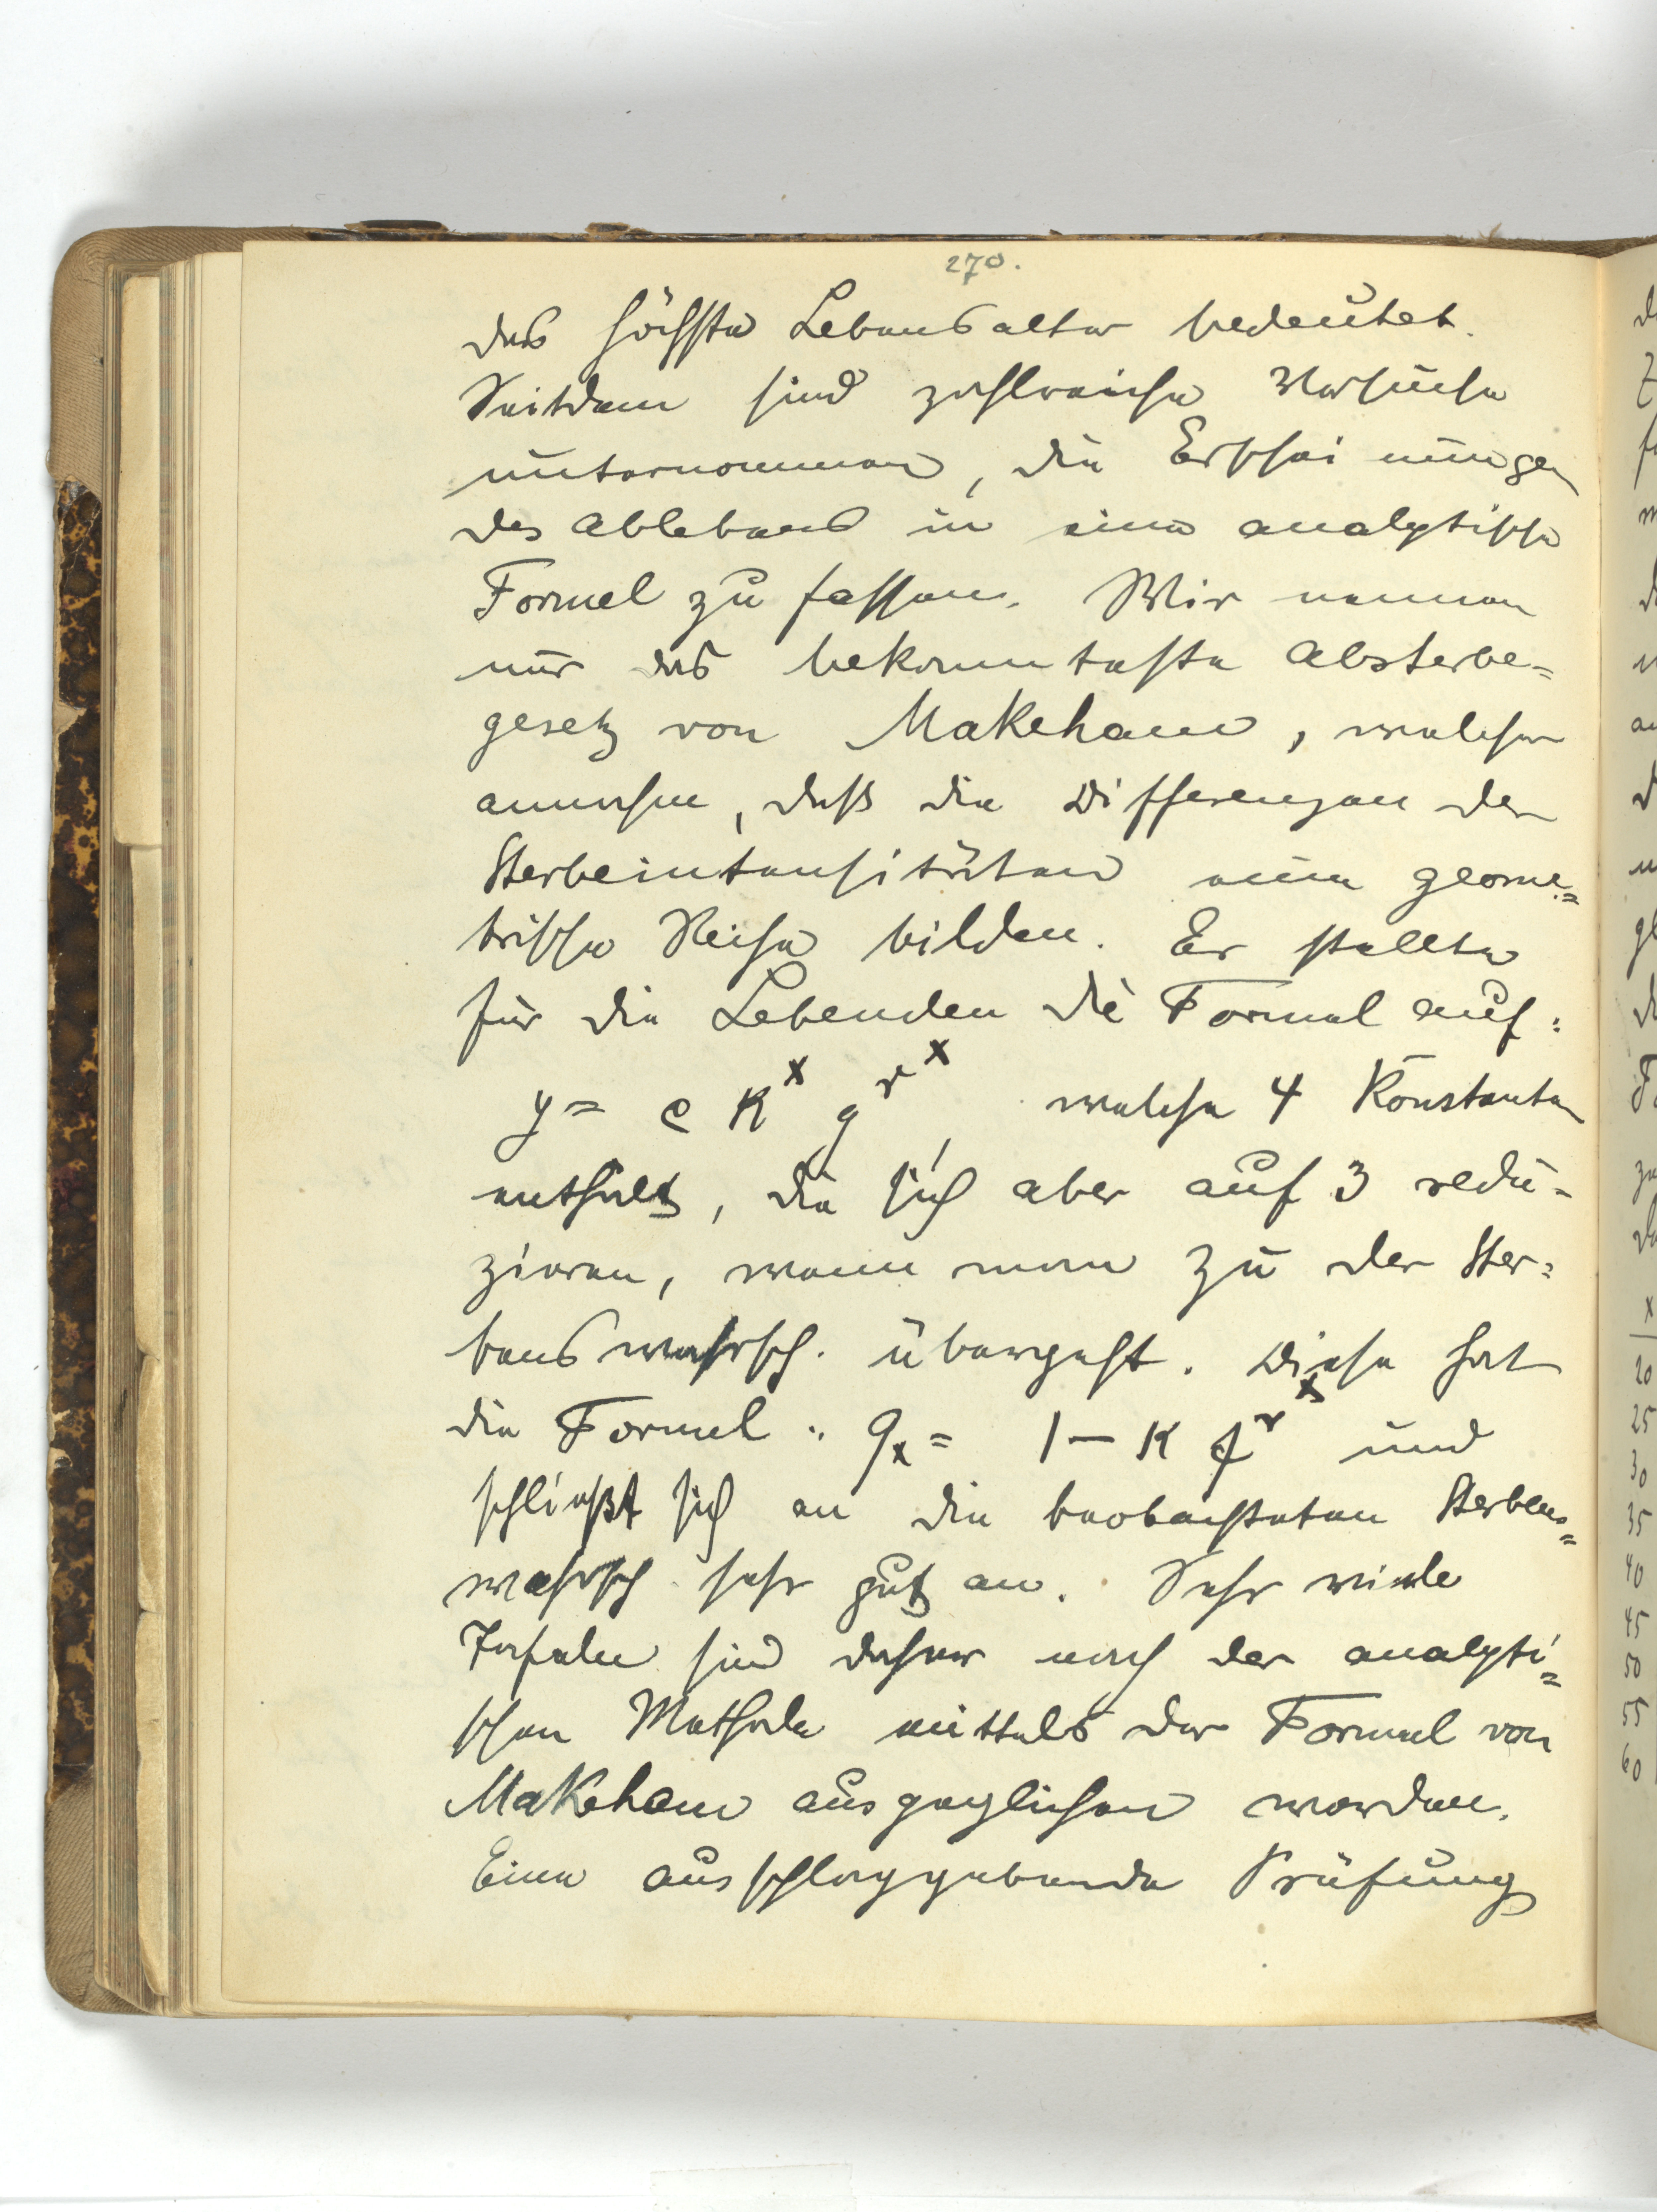 270.
das höchste Lebensalter bedeutet.
Seitdem sind zahlreiche Versuche
unternommen, die Erscheinungen
des Ablebens in eine analytische
Formel zu fassen. Wir nennen
nur das bekannteste Absterbe=
gesetz von Makeham, welcher
annahm, daß die Differenzen der
Sterbeintensitäten eine geome=
trische Reihe bilden. Er stellte
für die Lebenden die Formel auf:
y = c k^x g^{r^x}, welche 4 Konstanten
enthält, die sich aber auf 3 redu=
zieren, wenn man zu der Ster=
benswahrsch. übergeht. Diese hat
die Formel: q_x = 1 - k f^{r^x} und
schließt sich an die beobachteten Sterbens=
wahrsch. sehr gut an. Sehr viele
Tafeln sind daher nach der analyti=
schen Methode mittels der Formel von
Makeham ausgeglichen worden.
Eine ausschlaggebende Prüfung
x
20
25
30
35
40
45
50
55
60